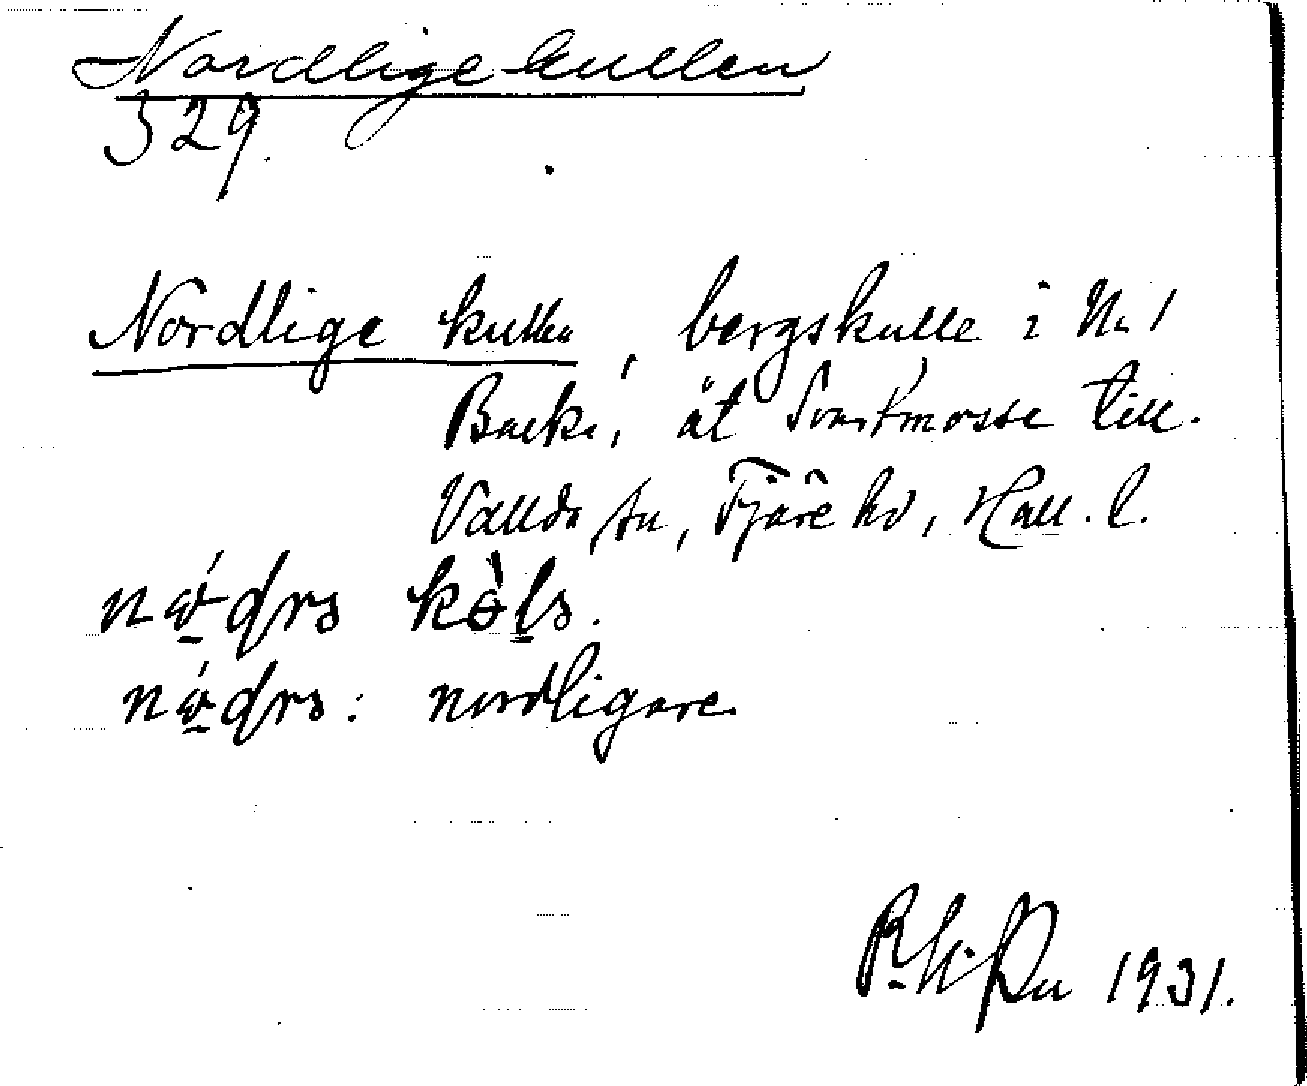 Nordlige kullen
329.
Nordlige kullen, bergskulle i Nr 1
Backa, åt Svartmosse till.
Vallda sn, Fjäre hd, Hall. l.
: nordligare.
1931.